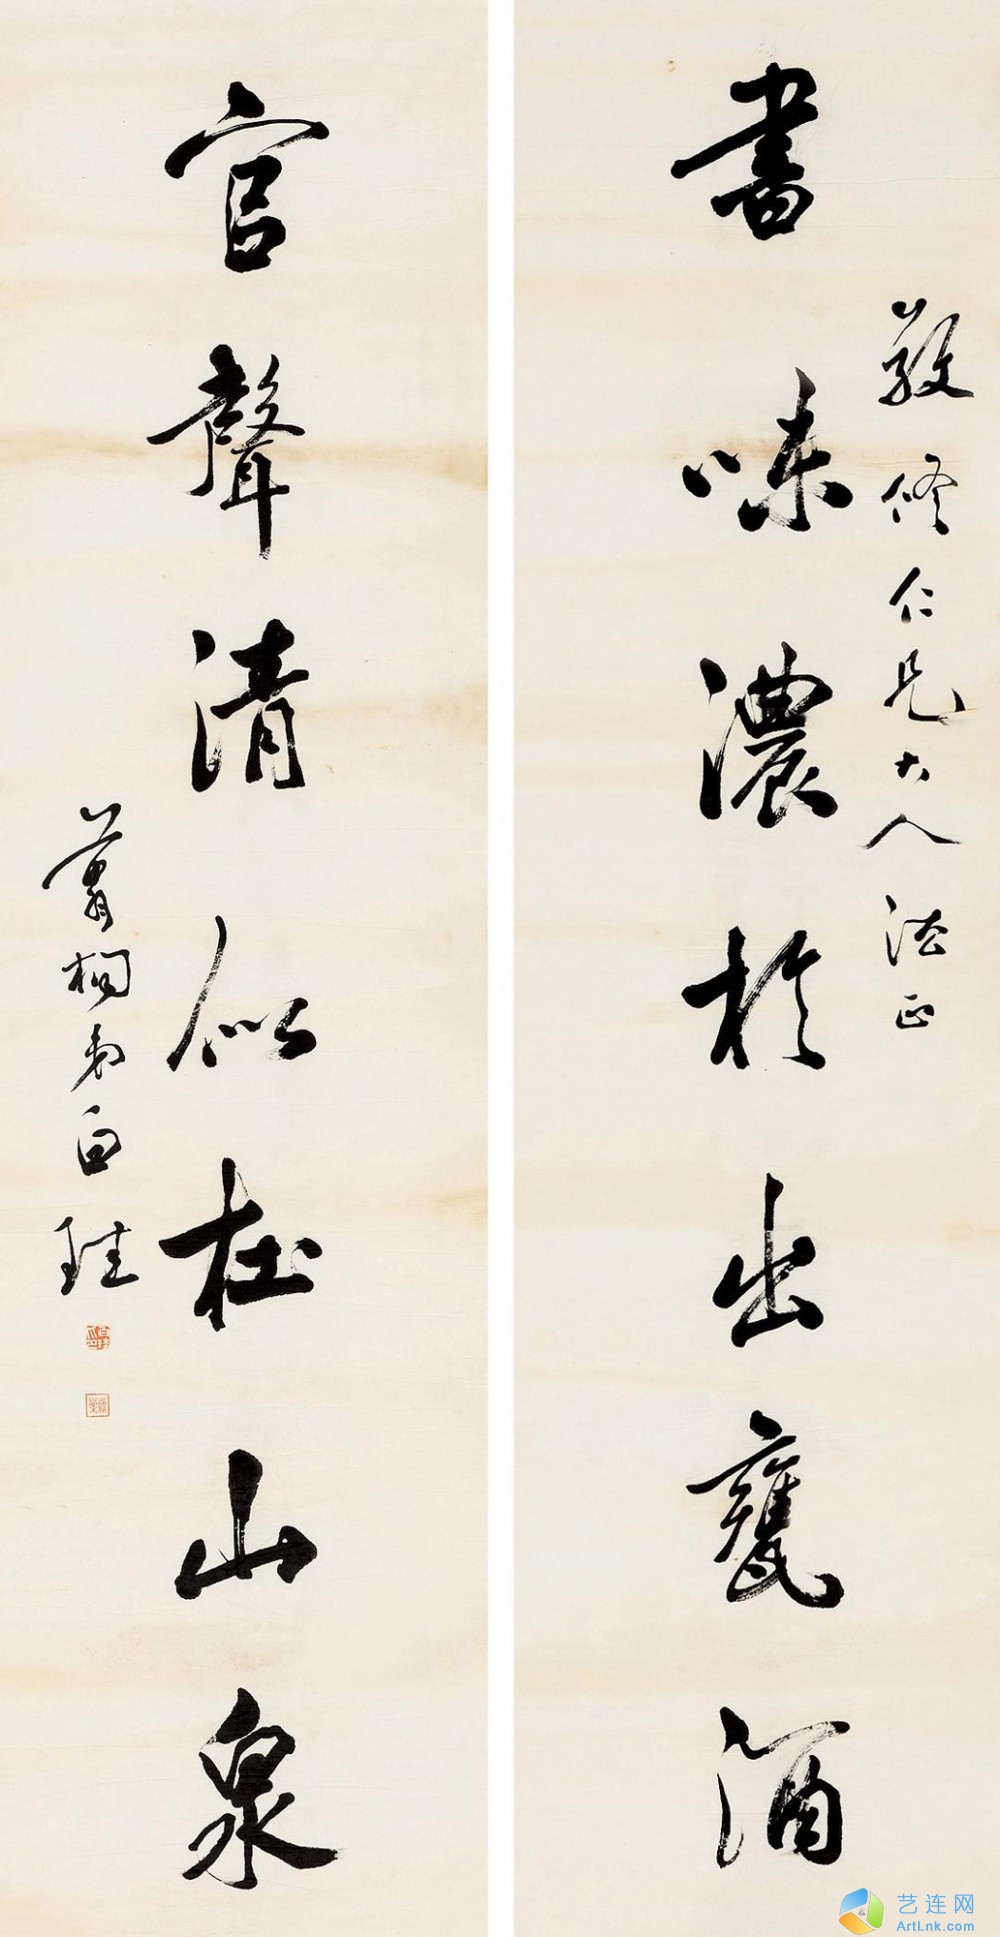 敬修仁兄大人法正
書味濃於出甕酒
官聲清似在山泉
桐弟白珪
艺连网
ArtLnk.com